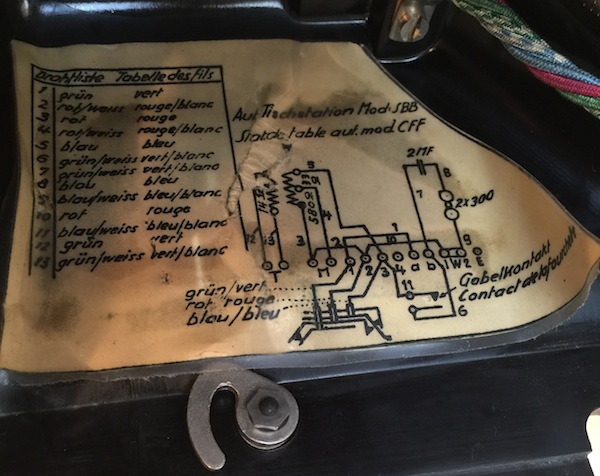 Drahtliste Tabelle des fils
1 grün vert
2 rot/weiss rouge/blanc
3 rot rouge
4 rot/weiss rouge/blanc
5 blau bleu
6 grün/weiss vert/blanc
7 grün/weiss vert/blanc
8 blau bleu
blau/weiss bleu/blanc
10 rot rouge
11 blau/weiss bleu/blanc
12 grün vert
13 grün/weiss vert/blanc
Aut Tischstation Mod. SBB
Stat.de table aut. mod. CFF
2MF
5
7
8
2x300
580Ω
12
13
3
2
1
10
9
11 1 2 3 4 a b 1 W2 E
11
6
grün/vert
rot rouge
blau/bleu
Gabelkontakt
Contact de la fourchette